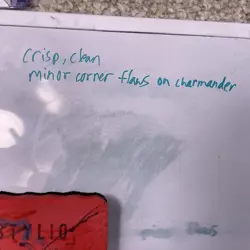 crisp, clean
minor corner flaws on charmander
STYLIO
flaws